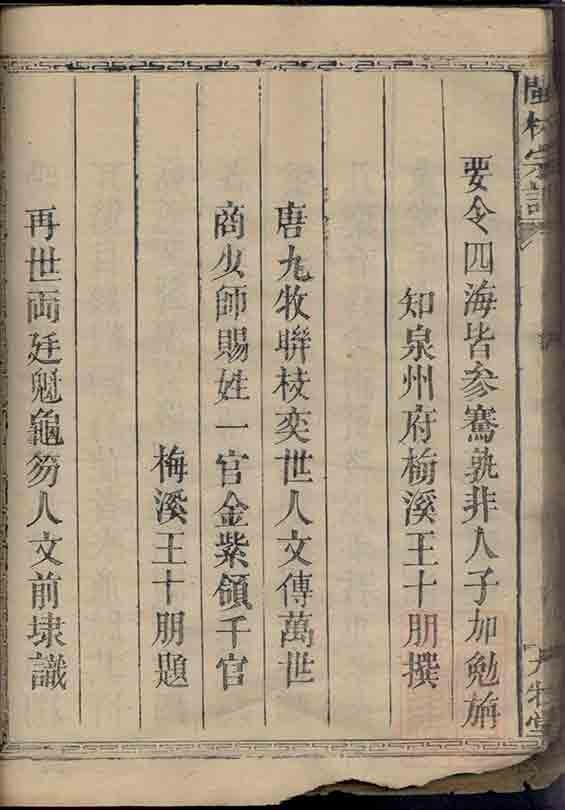 閩林宗譜
九牧堂
要令四海皆參騫孰非人子加勉旃
知泉州府梅溪王十朋撰
唐九牧聯枝奕世人文傳萬世
商少師賜姓一官金紫領千官
梅溪王十朋題
再世両廷魁龜笏人文前埭識